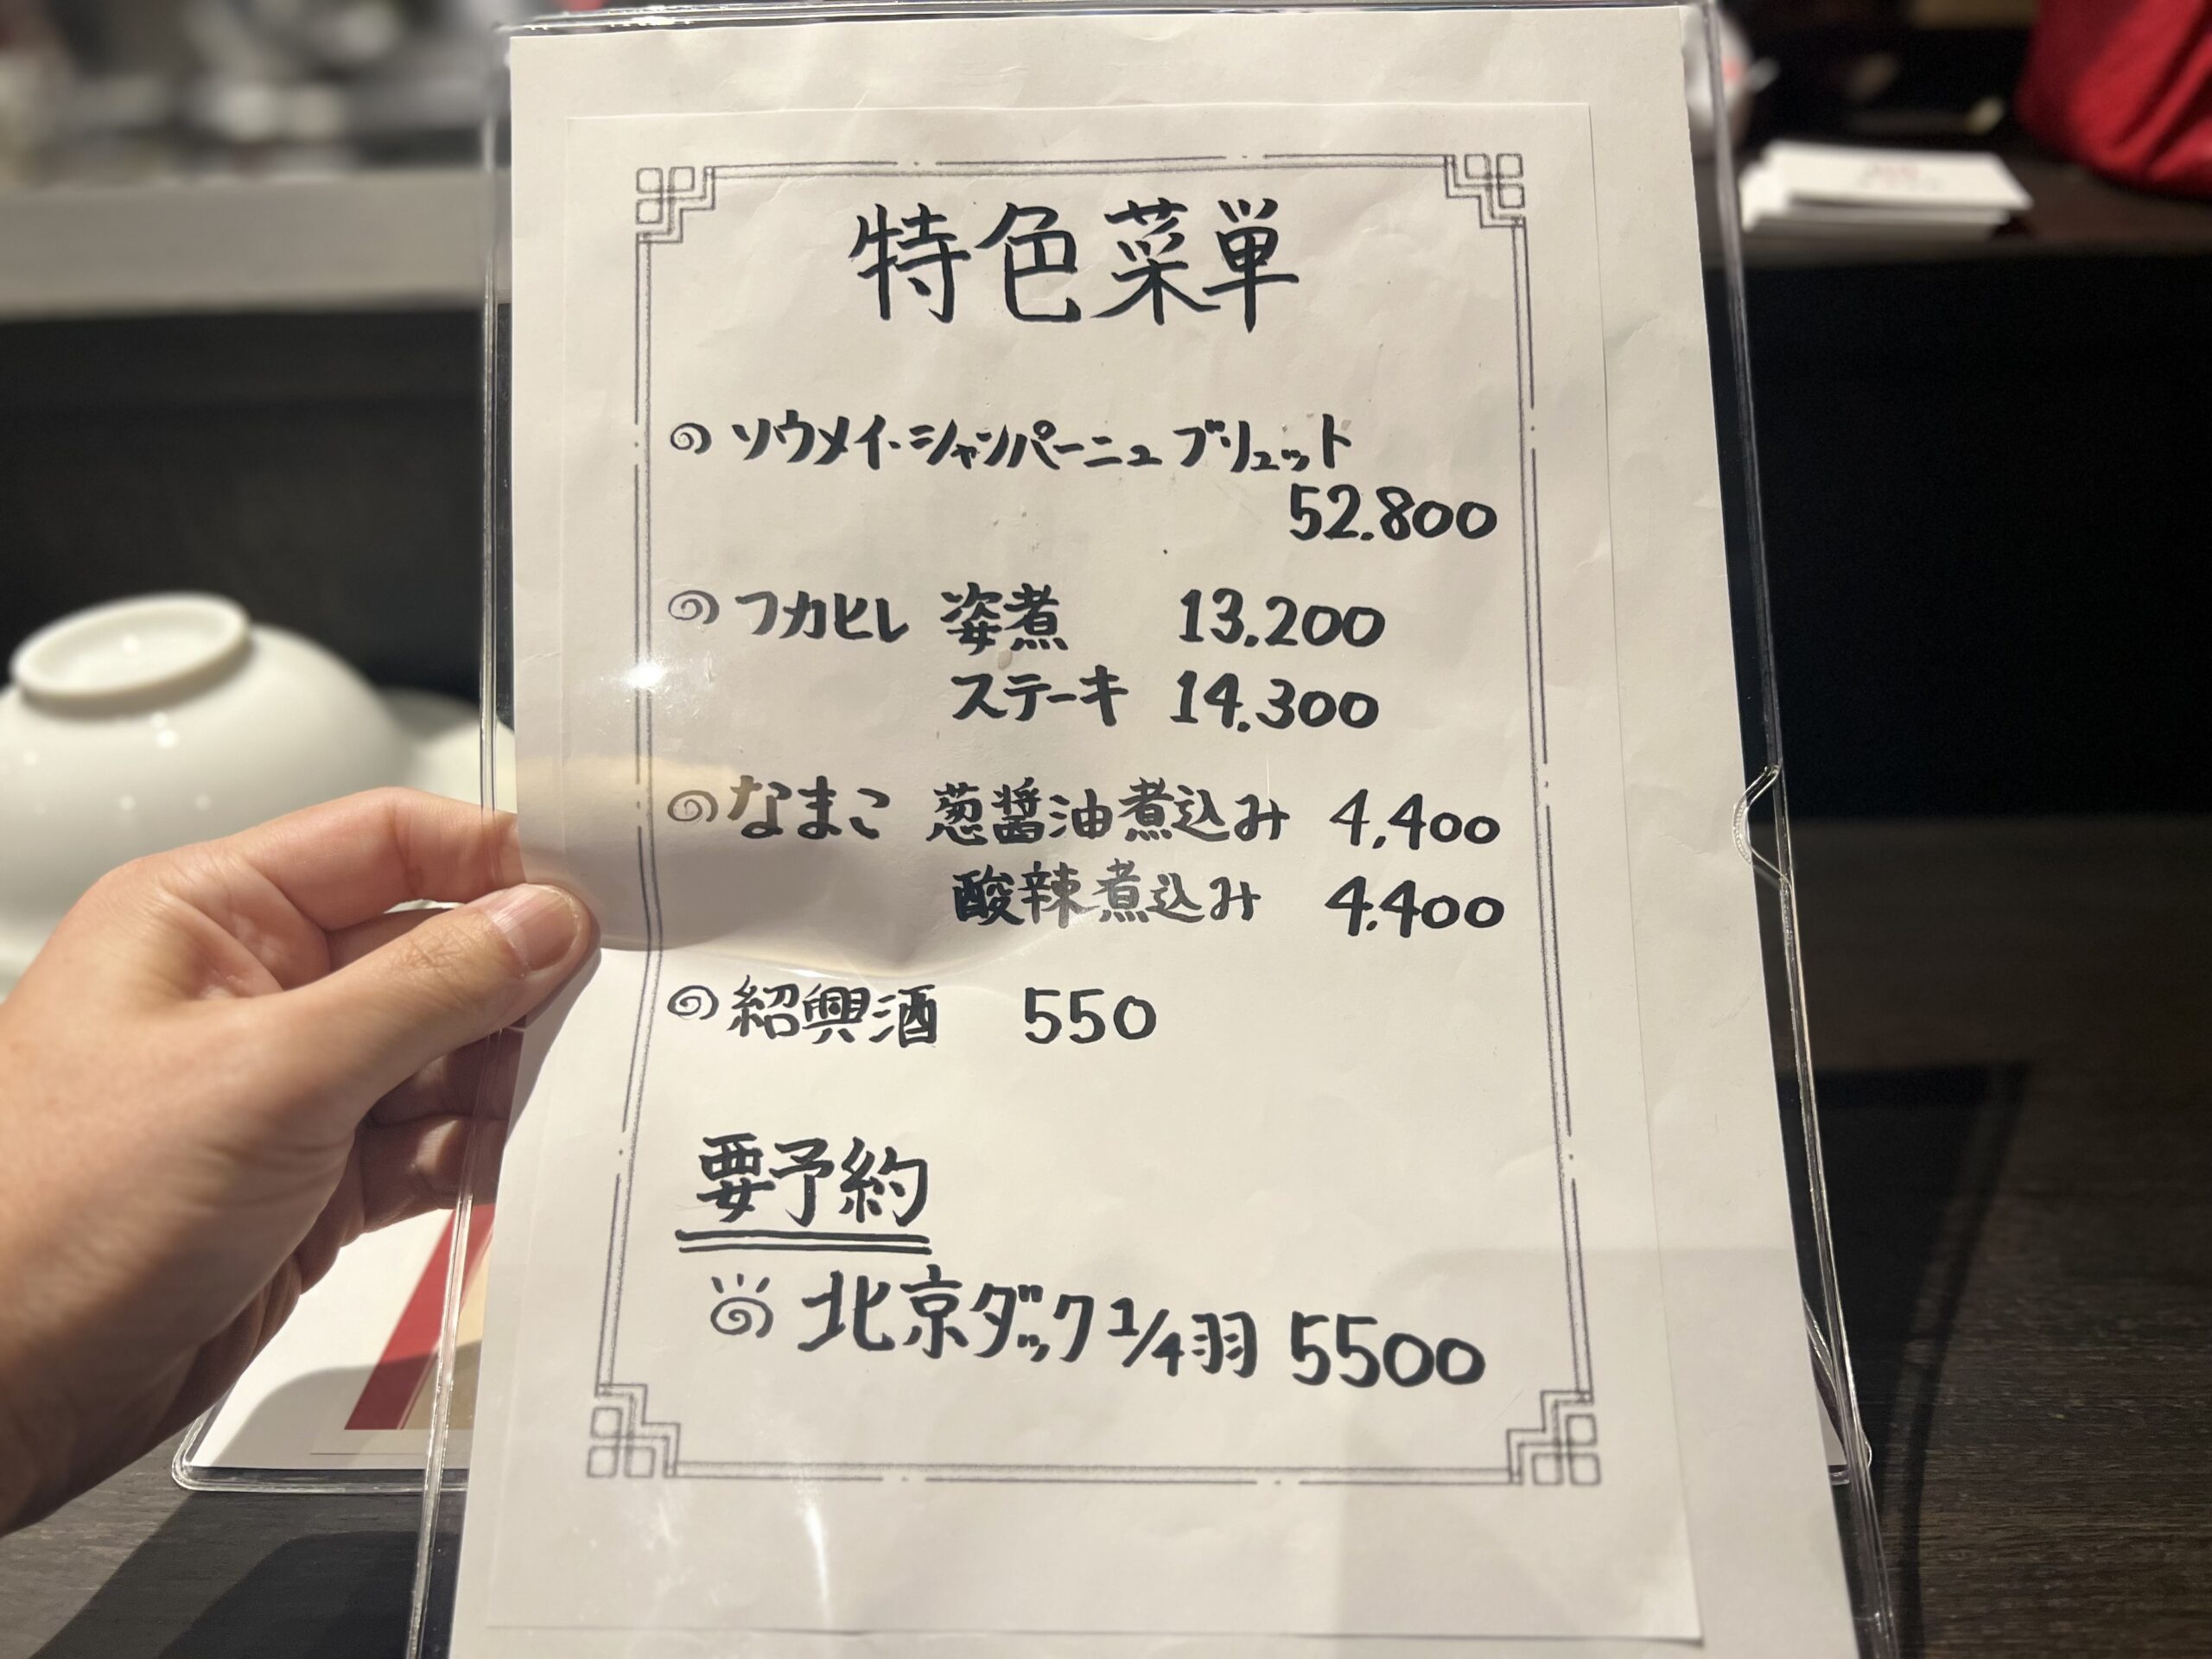 特色菜単
ソウメイ・シャンパーニュ ブリュット
52.800
フカヒレ 姿煮 13.200
ステーキ 14.300
なまこ 葱醤油煮込み 4,400
酸辣煮込み 4.400
紹興酒 550
要予約
北京ダック1/4羽 5500